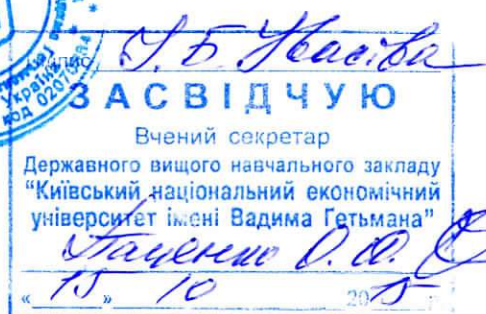 Україна
код 02070884
І. Б. Івасіва
ЗАСВІДЧУЮ
Вчений секретар
Державного вищого навчального закладу
“Київський національний економічний
університет імені Вадима Гетьмана”
Паценко О. Ю.
« 15 » 10 2015